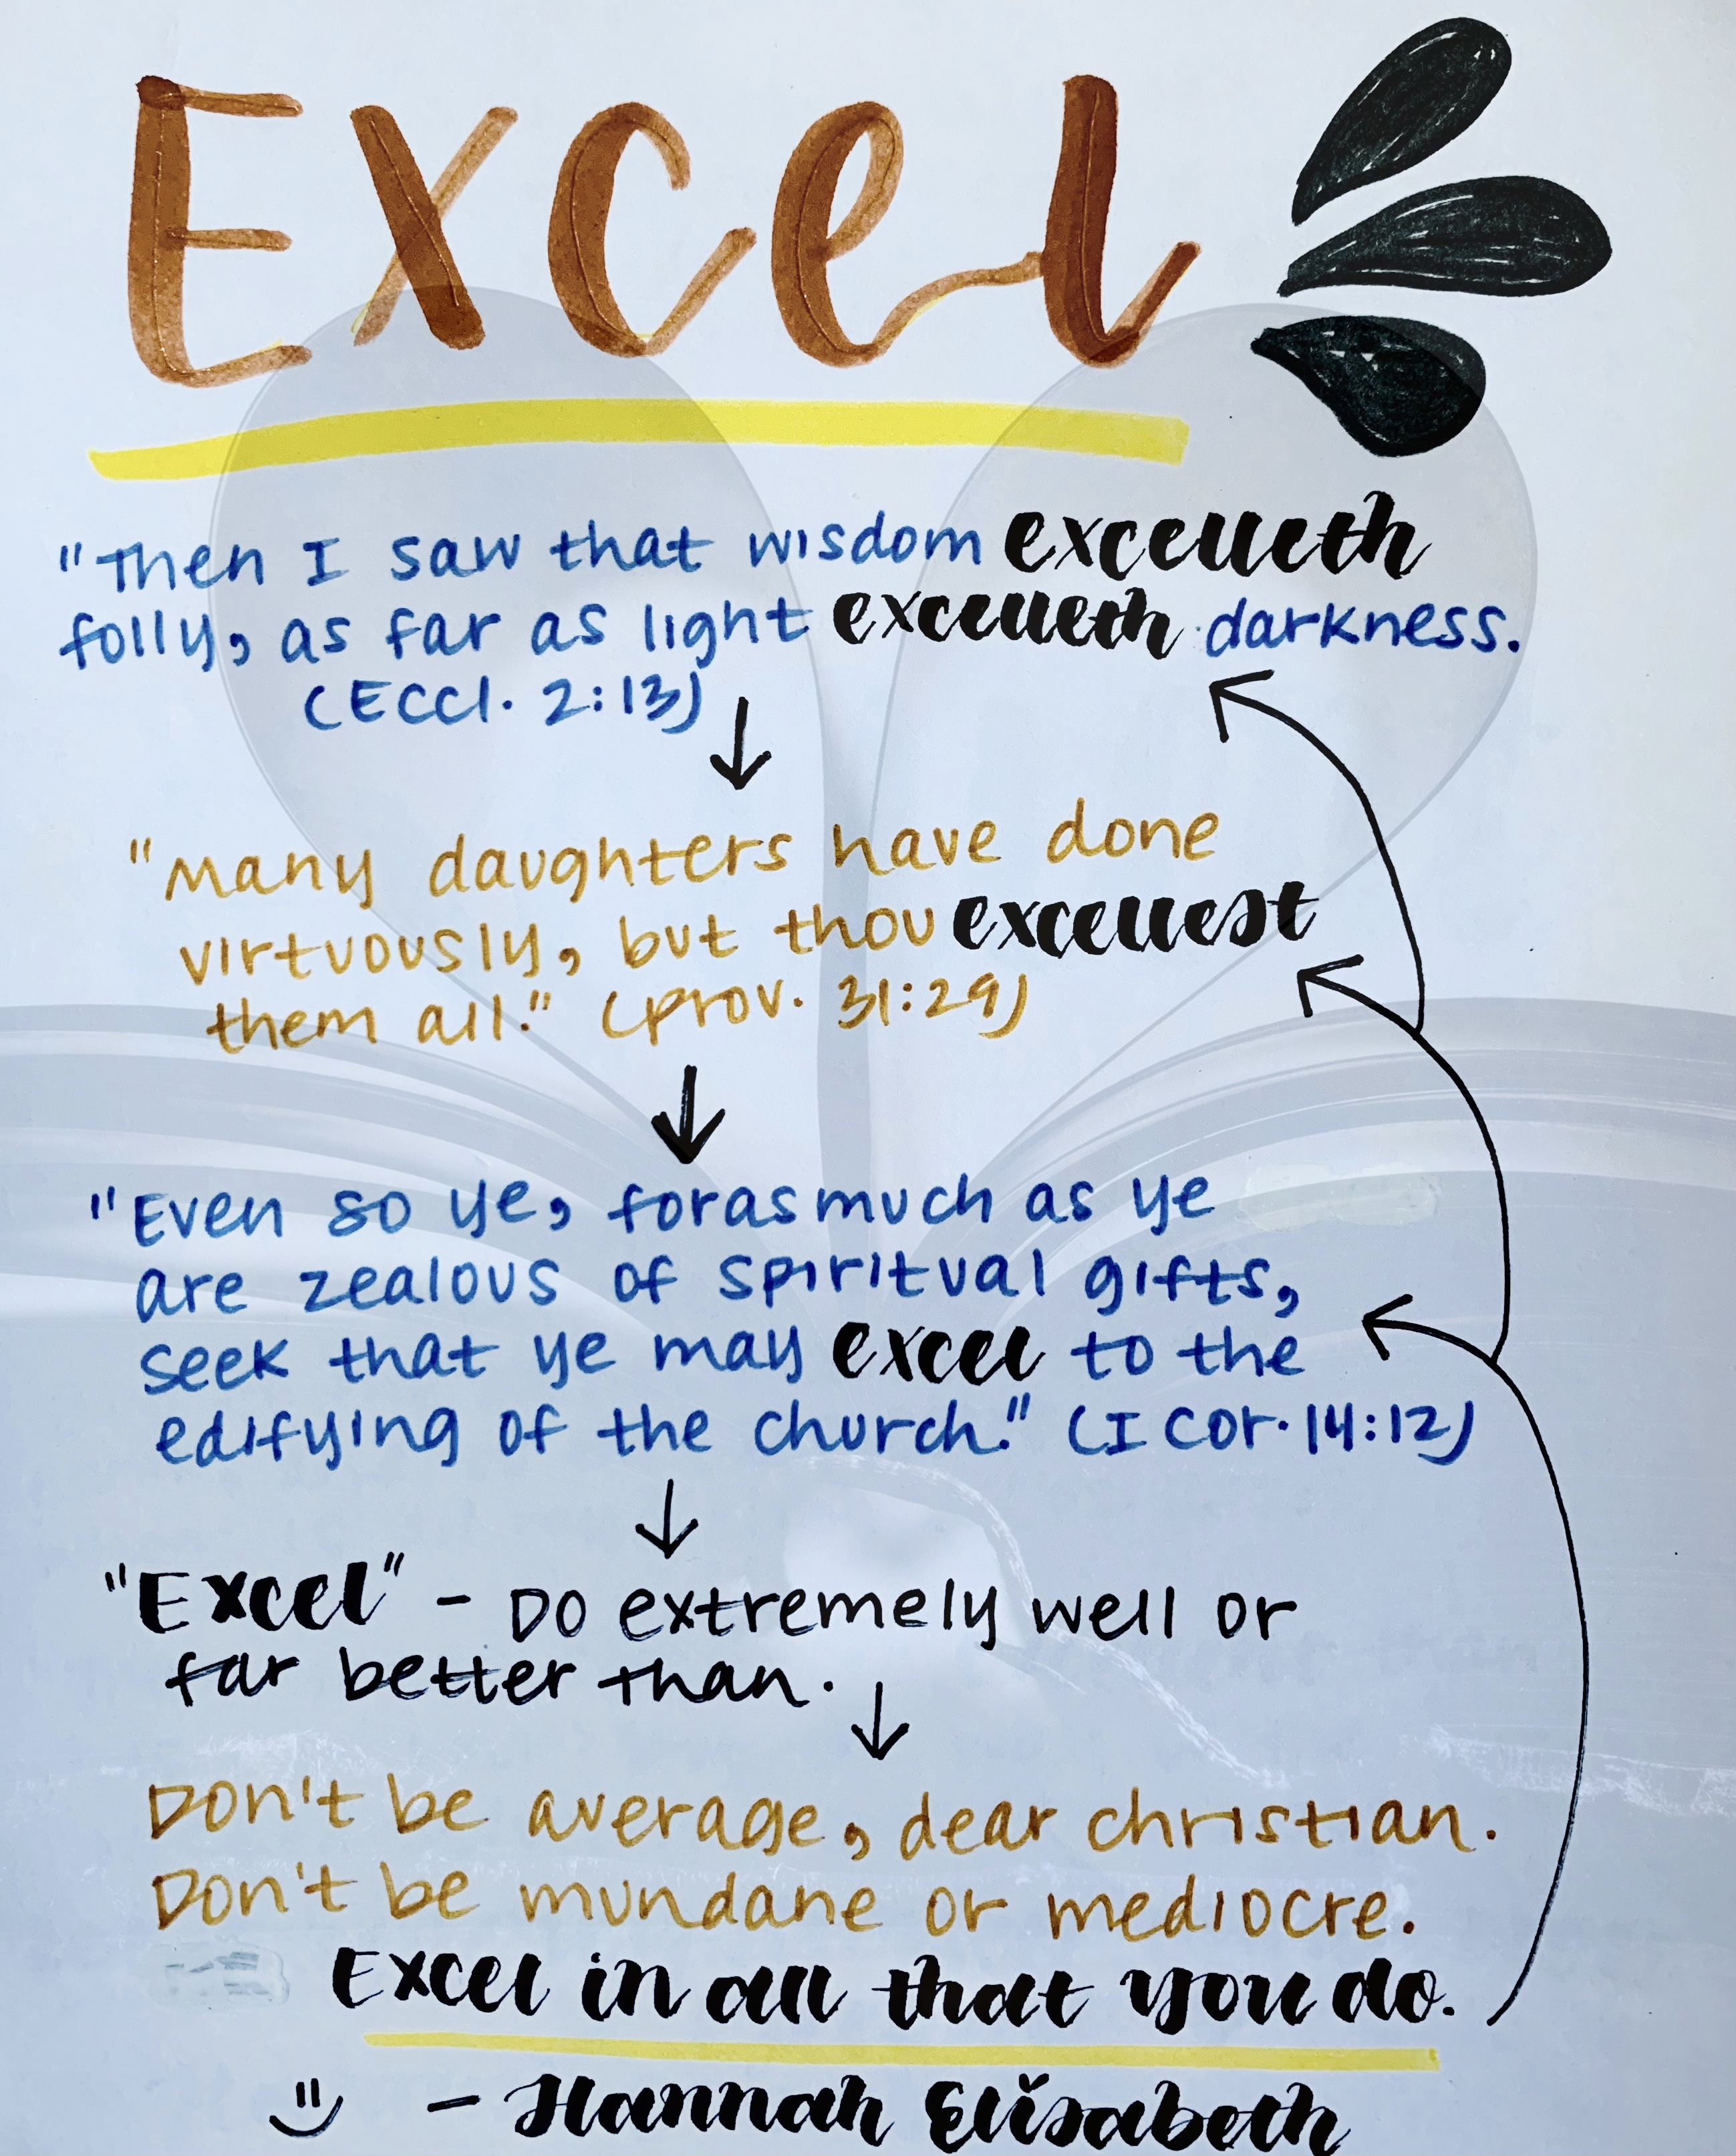 Excel
"Then I saw that wisdom excelleth
folly, as far as light excelleth darkness.
(Eccl. 2:13)
"Many daughters have done
virtuously, but thou excellest
them all." (Prov. 31:29)
"Even so ye, forasmuch as ye
are zealous of spiritual gifts,
seek that ye may excel to the
edifying of the church." (I Cor. 14:12)
"Excel" - Do extremely well or
far better than.
Don't be average, dear christian.
Don't be mundane or mediocre.
Excel in all that you do.
- Hannah Elisabeth